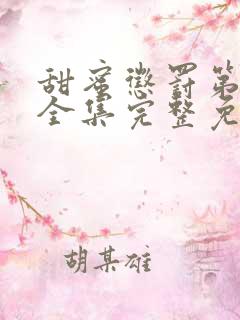 甜蜜惩罚第
全集完整免
胡某雄